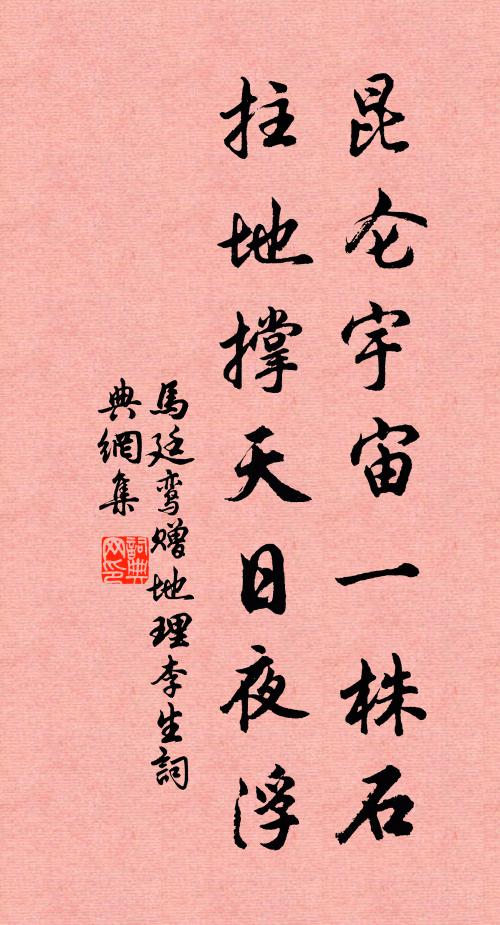 昆仑宇宙一株石
拄地撑天日夜浮
馬廷鸾赠地理李生詞
典網集
詞典网印